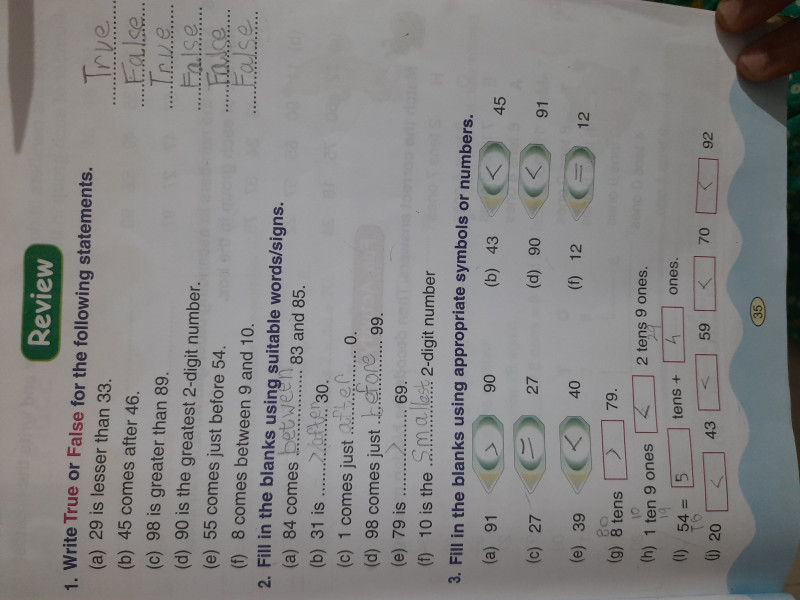 Review
1. Write True or False for the following statements.
(a) 29 is lesser than 33. True
(b) 45 comes after 46. False
(c) 98 is greater than 89. True
(d) 90 is the greatest 2-digit number. False
(e) 55 comes just before 54. False
(f) 8 comes between 9 and 10. False
2. Fill in the blanks using suitable words/signs.
(a) 84 comes between 83 and 85.
(b) 31 is > after 30.
(c) 1 comes just after 0.
(d) 98 comes just before 99.
(e) 79 is > 69.
(f) 10 is the smallest 2-digit number
3. Fill in the blanks using appropriate symbols or numbers.
(a) 91 > 90 (b) 43 < 45
(c) 27 = 27 (d) 90 < 91
(e) 39 < 40 (f) 12 = 12
80
(g) 8 tens > 79.
(h) 1 ten 9 ones < 2 tens 9 ones.
10 19 29
(I) 54 = 5 tens + 4 ones.
(J) 20 < 43 < 59 < 70 < 92
35